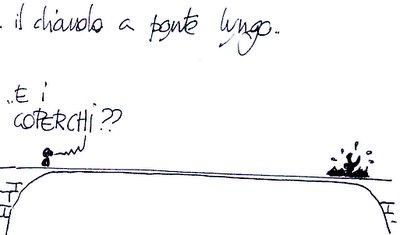 . il diavolo a ponte lungo..
..E i
COPERCHI??